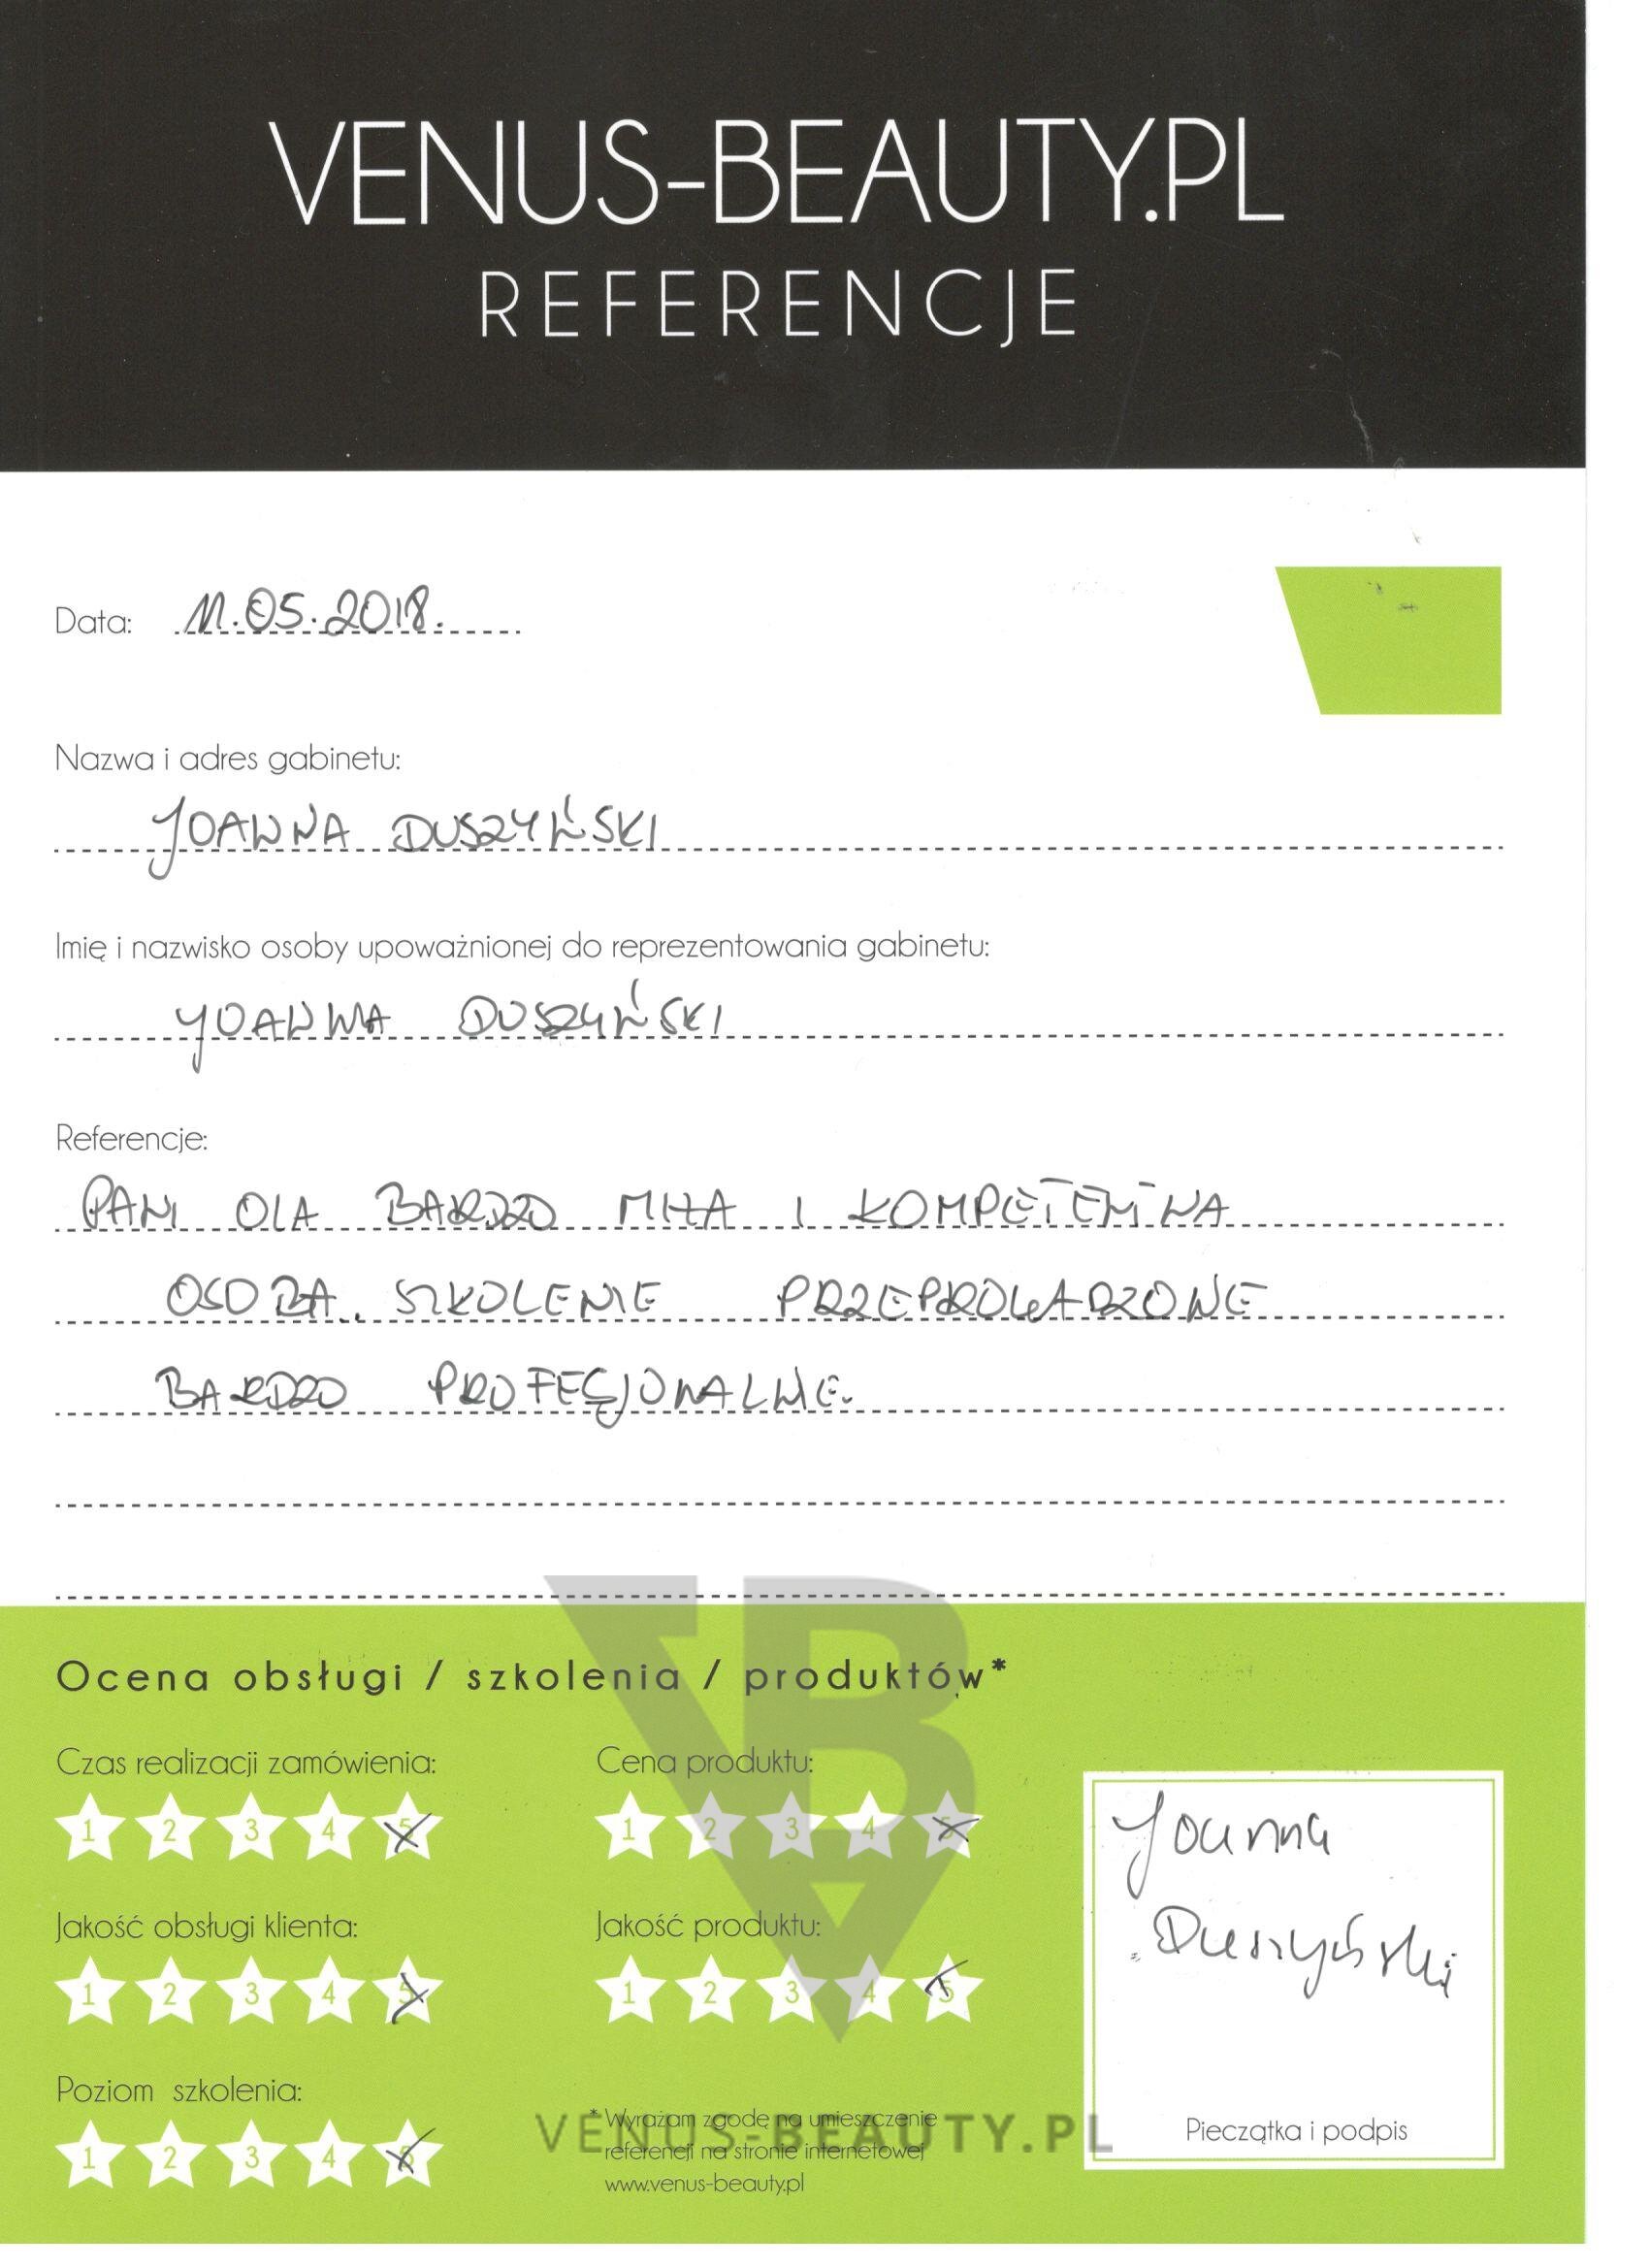 VENUS-BEAUTY.PL
REFERENCJE
Data: 11.05.2018.
Nazwa i adres gabinetu:
JOANNA DUSZYŃSKI
Imię i nazwisko osoby upoważnionej do reprezentowania gabinetu:
JOANNA DUSZYŃSKI
Referencje:
PANI OLA BARDZO MIŁA I KOMPETENTNA
OSOBA. SZKOLENIE PRZEPROWADZONE
BARDZO PROFESJONALNIE.
Ocena obsługi / szkolenia / produktów*
Czas realizacji zamówienia:
1 2 3 4 5
Cena produktu:
1 2 3 4 5
Jakość obsługi klienta:
1 2 3 4 5
Jakość produktu:
1 2 3 4 5
Poziom szkolenia:
1 2 3 4 5
* Wyrażam zgodę na umieszczenie
referencji na stronie internetowej
www.venus-beauty.pl
Joanna
Duszyński
Pieczątka i podpis
VBA
VENUS-BEAUTY.PL